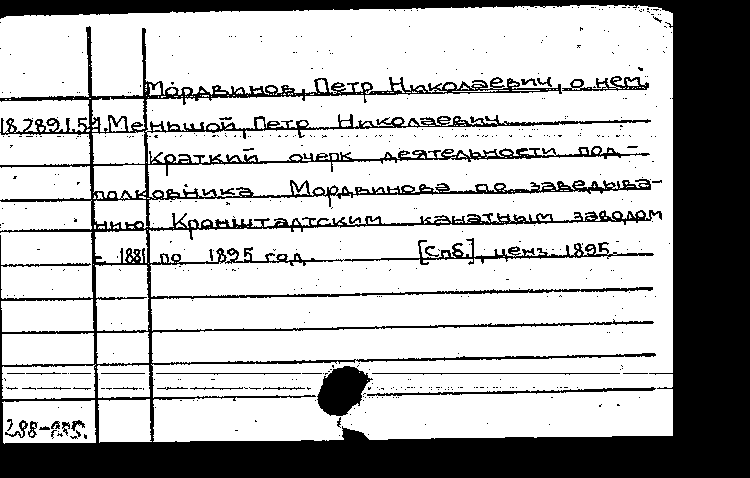 Мордвинов, Петр Николаевич, о нем.
18.289.1.54. Меньшой, Петр Николаевич.
Краткий очерк деятельности под-
полковника Мордвинова по заведыва-
нию Кронштадтским канатным заводом
- 1881 по 1895 год. [Спб.], ценз. 1895.